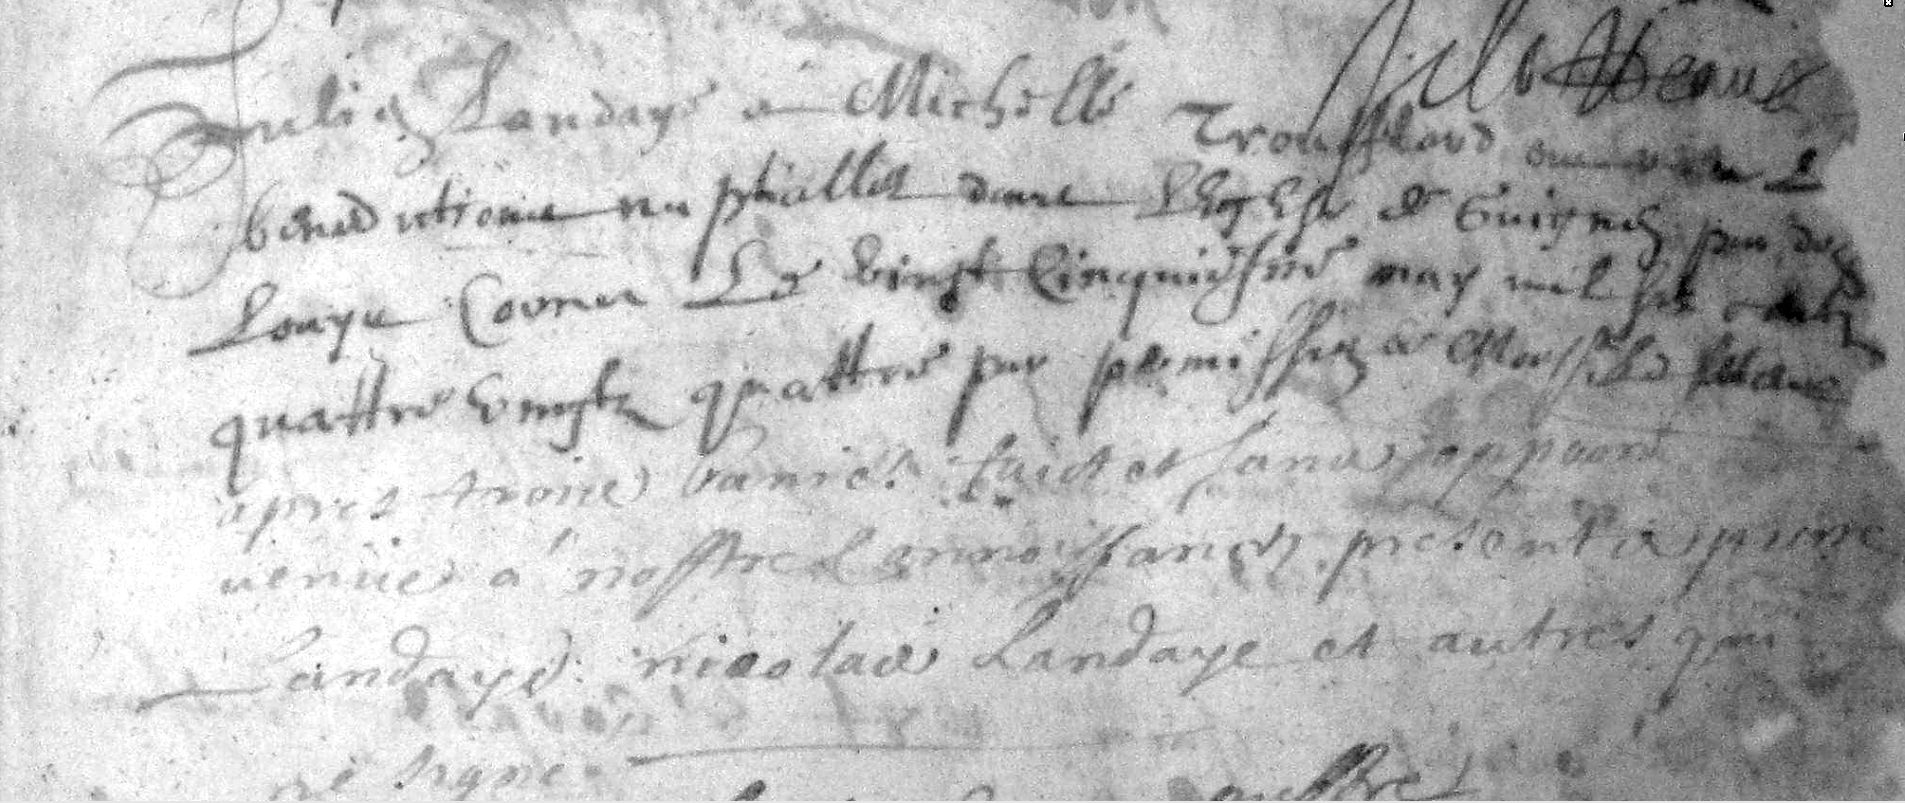 Julien Landays et Michelle Troufflard ont recu L
benedictionn nuptialle dans L'Eglise de Guignen par de
Louys Cormier Le vingt Cinquiesme may mil six centz
quattre vingtz quattre par permission de Monsr Le
apres trois bannies faict et sans oppoon
venue a nostre Connoissance presentz pierre
Landaye nicolas Landaye et autres qui
ne signe